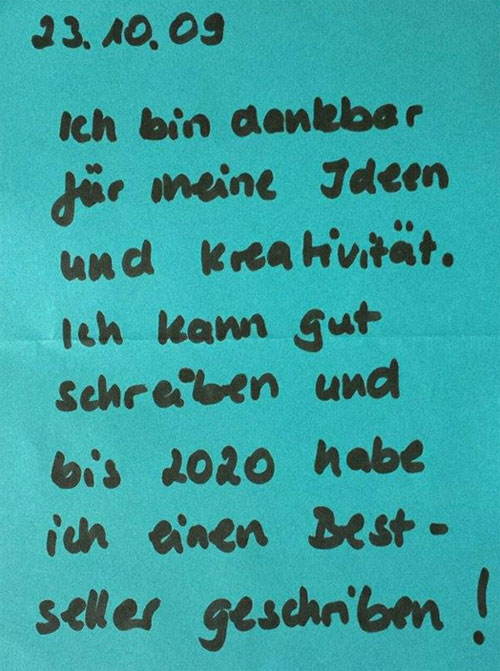 23.10.09
Ich bin dankbar
für meine Ideen
und kreativität.
Ich kann gut
schreiben und
bis 2020 habe
ich einen Best-
seller geschriben!